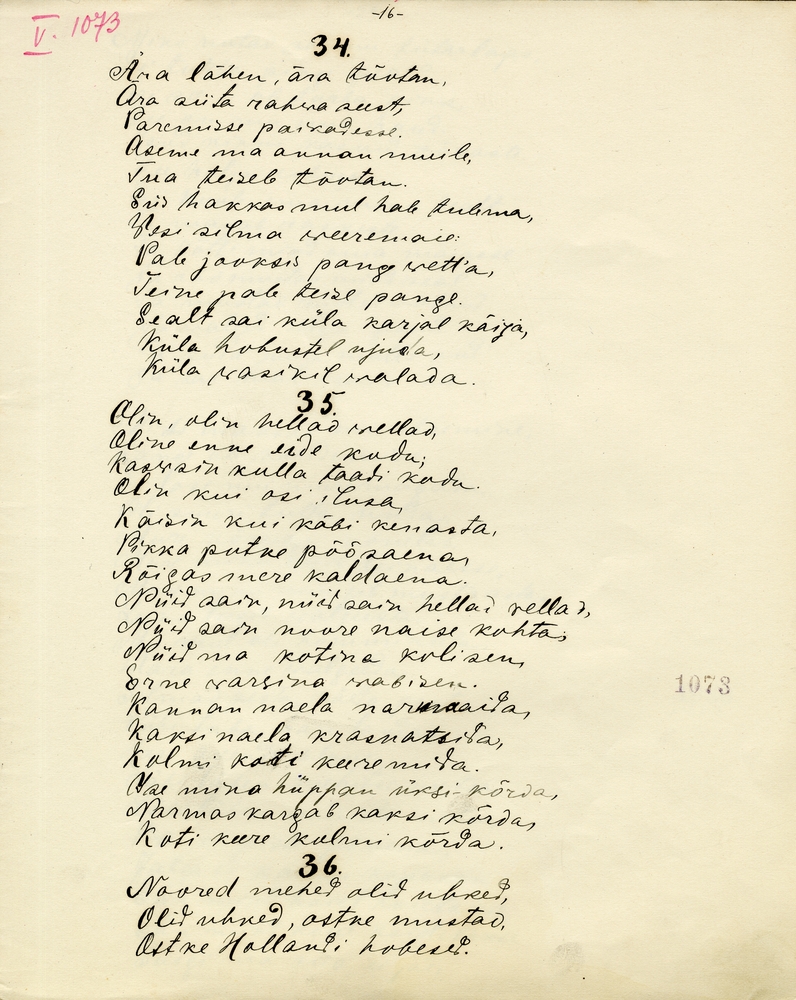 V. 1073
-16-
34.
Ära lähen, ära tõotan,
Ära siita rahwa seest,
Paremisse paikadesse.
Aseme ma annan muile,
Trea teiseb tõotan.
Siis hakkas mul hale tulema,
Wesi silma weeremaie:
Pale jooksis pange wett'a,
Teine pale teise pange.
Sealt sai küla karjal käija,
Küla hobustel ujuda,
Küla wasikil walada.
35.
Olin, olin hellad wellad,
Oline enne eide kodu;
Kaswsin kulla taadi kodu.
Olin kui osi ilusa,
Käisin kui käbi kenasta,
Pikka putke põõsaena,
Rõigas mere kaldaena.
Nüid sain, nüid sain hellad vellad,
Nüid sain noore naise kohta;
Nüid ma kotina kolisen,
Erne warsina wabisen.
Kannan naela narmaida,
Kaksi naela krasnatsida,
Kolmi koti keeremida.
Ise mina hüppan üksi kõrda,
Narmas kargab kaksi kõrda,
Koti keere kolmi kõrda.
1073
36.
Noored mehed olid uhked,
Olid uhked, ostke mustad,
Ostke Hollandi hobesed.